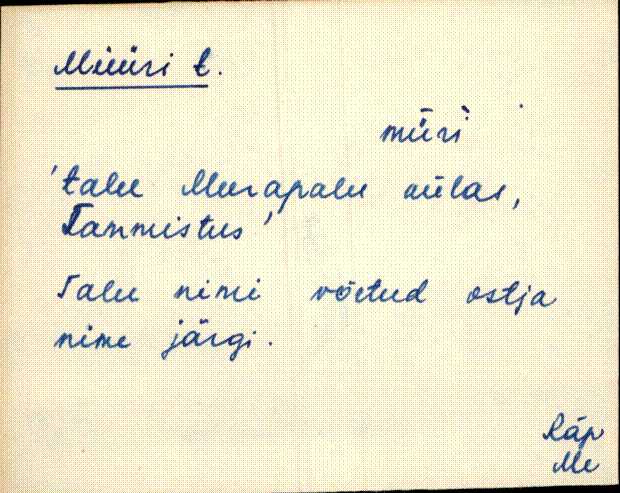 Müüri t.
müri
'talu Meerapalu külas,
Tammistus'
Talu nimi võetud ostja
nime järgi.
Räp
Me